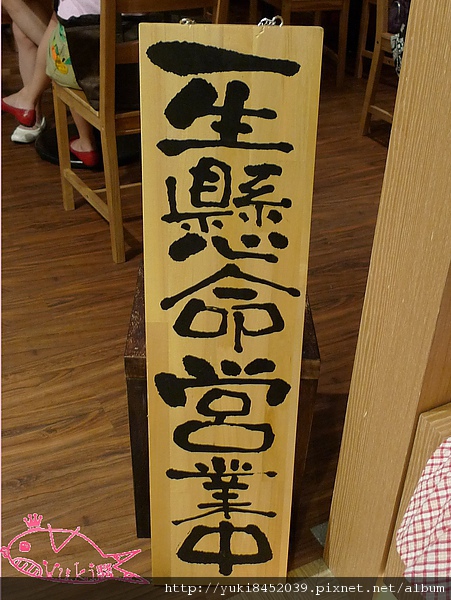 一生懸命営業中
Yuki
http://yuki8452039.pixnet.net/album